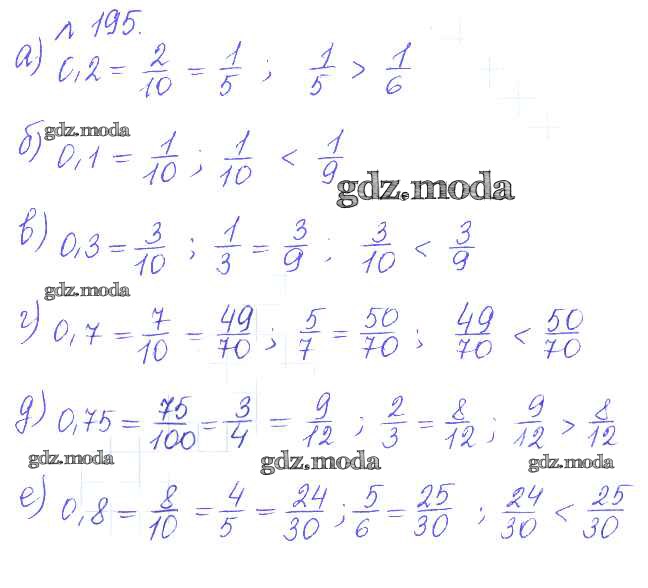 № 195.
а) 0,2 = 2/10 = 1/5 ; 1/5 > 1/6
gdz.moda
б) 0,1 = 1/10 ; 1/10 < 1/9
gdz.moda
в) 0,3 = 3/10 ; 1/3 = 3/9 ; 3/10 < 3/9
gdz.moda
г) 0,7 = 7/10 = 49/70 ; 5/7 = 50/70 ; 49/70 < 50/70
д) 0,75 = 75/100 = 3/4 = 9/12 ; 2/3 = 8/12 ; 9/12 > 8/12
gdz.moda gdz.moda gdz.moda
е) 0,8 = 8/10 = 4/5 = 24/30 ; 5/6 = 25/30 ; 24/30 < 25/30